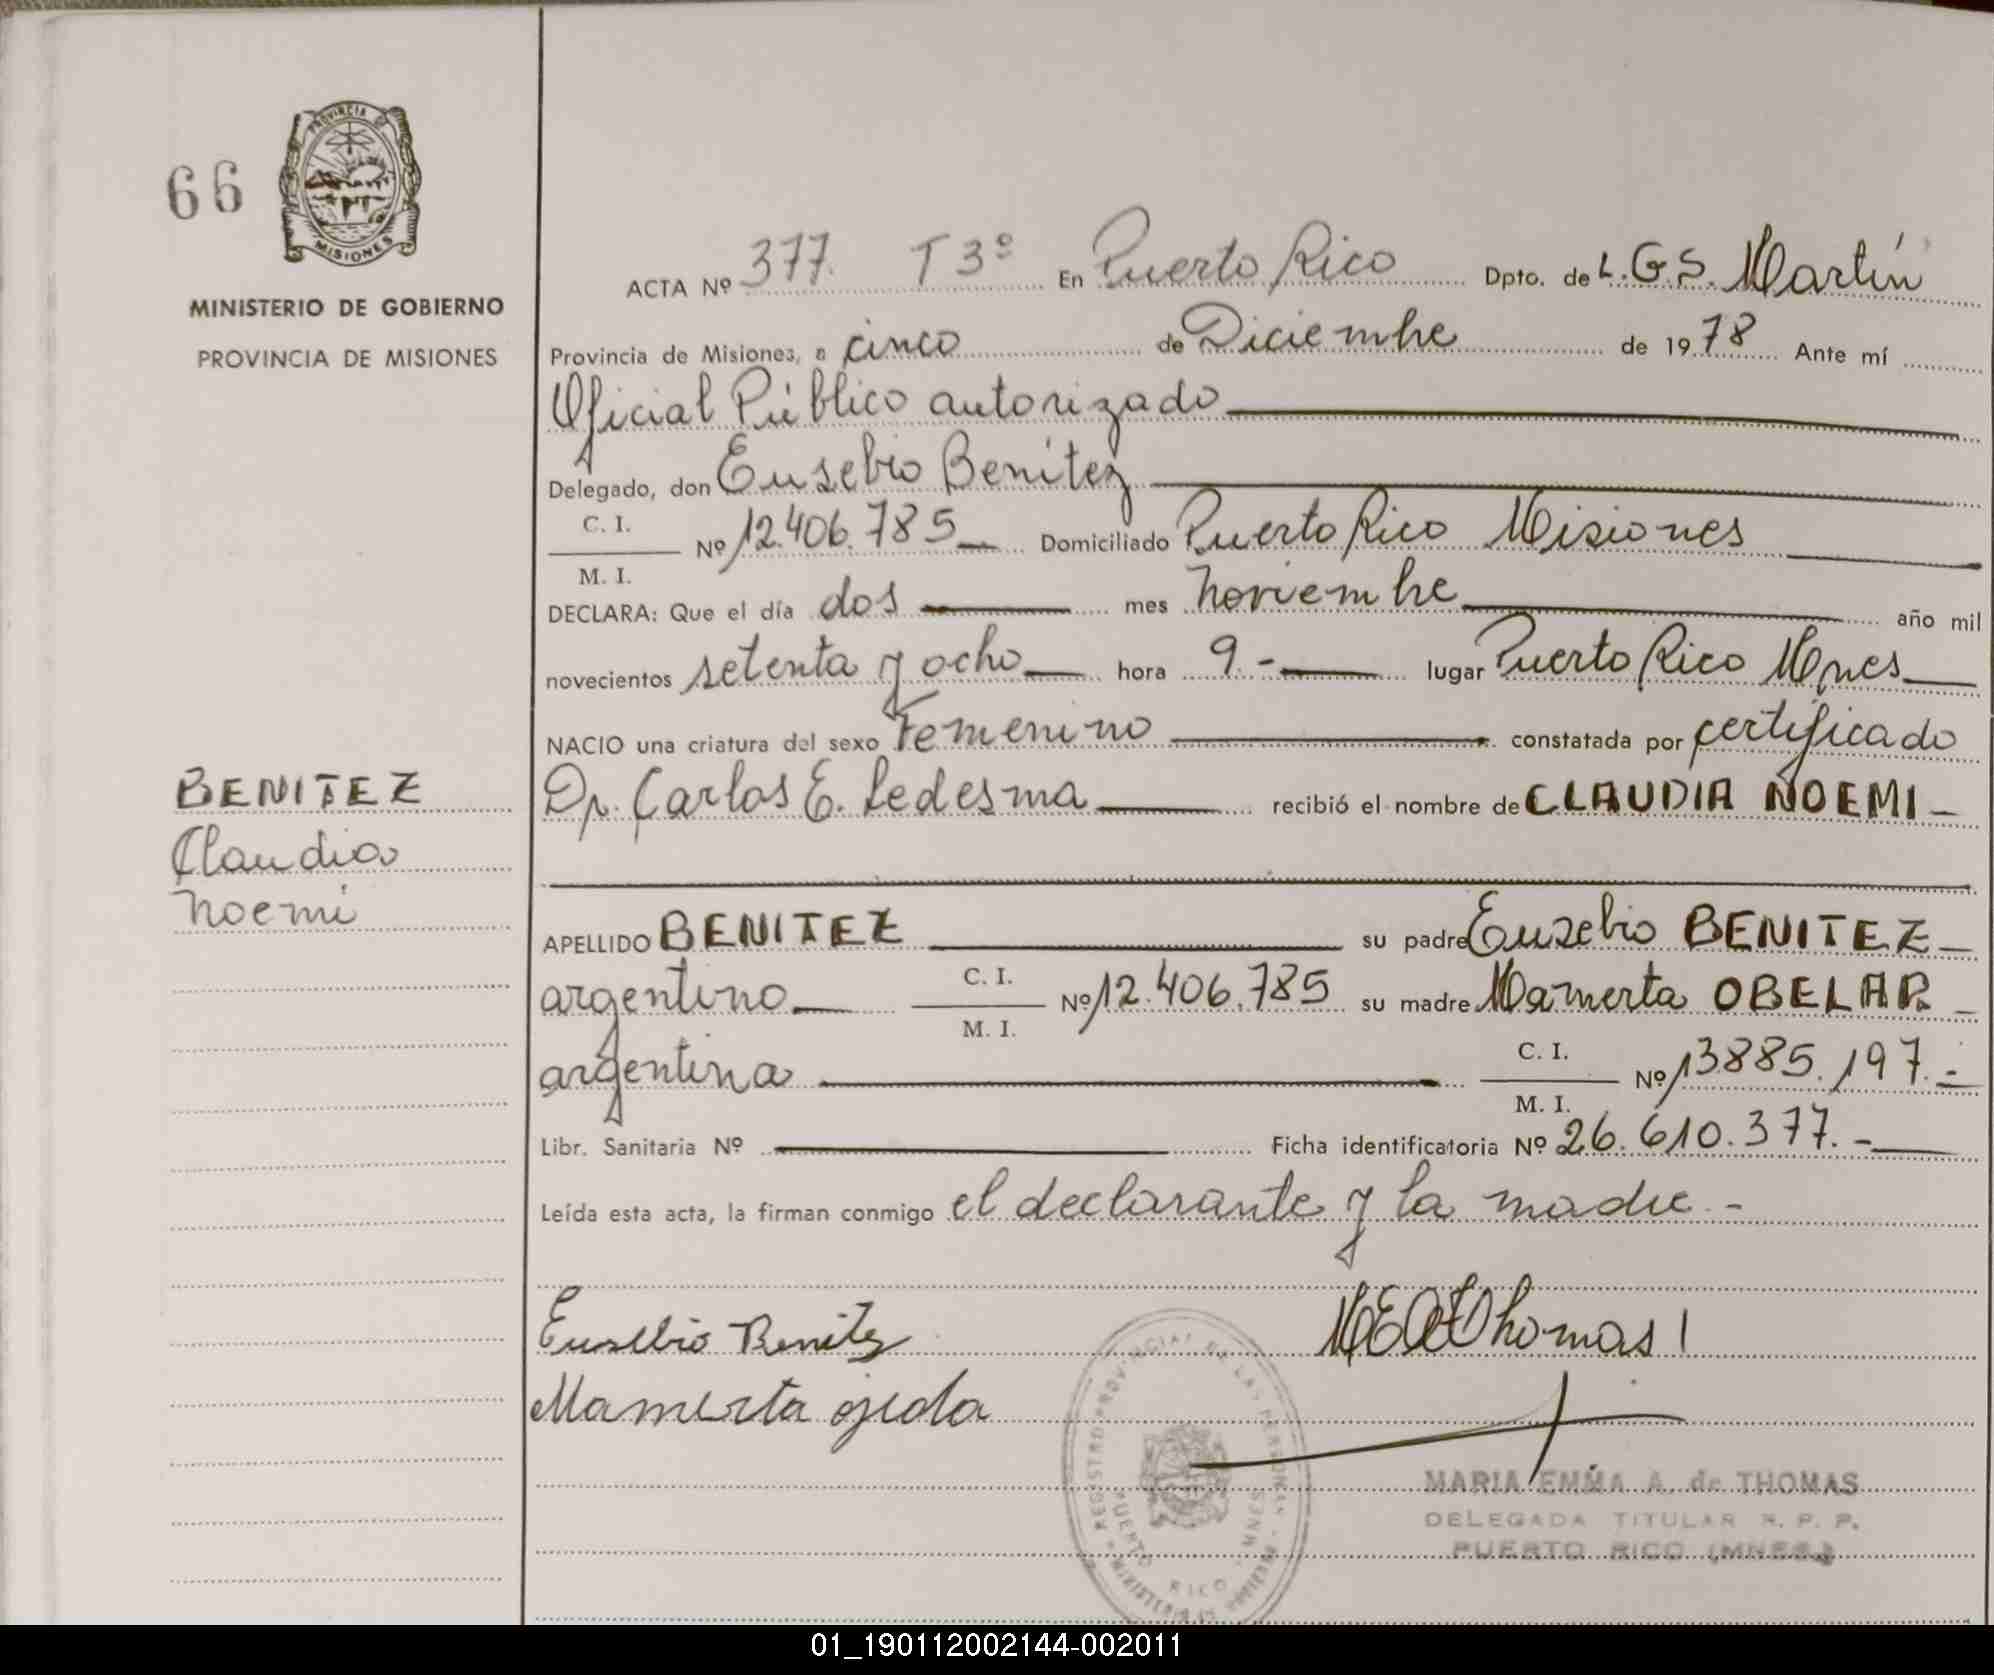 66
PROVINCIA DE
MISIONES
MINISTERIO DE GOBIERNO
PROVINCIA DE MISIONES
ACTA Nº 377. T 3º En Puerto Rico Dpto. de L.G.S. Martín
Provincia de Misiones, a cinco de Diciembre de 1978 Ante mí
Oficial Público autorizado
Delegado, don Eusebio Benitez
C. I.
M. I.
Nº 12.406.785 Domiciliado Puerto Rico Misiones
DECLARA: Que el día dos mes Noviembre año mil
novecientos setenta y ocho hora 9.- lugar Puerto Rico Mnes
NACIO una criatura del sexo Femenino constatada por certificado
Dr. Carlos E. Ledesma recibió el nombre de CLAUDIA NOEMI
BENITEZ
Claudia
Noemi
APELLIDO BENITEZ su padre Eusebio BENITEZ
argentino C. I.
M. I.
Nº 12.406.785 su madre Mamerta OBELAR
argentina C. I.
M. I.
Nº 13885.197.-
Libr. Sanitaria Nº Ficha identificatoria Nº 26.610.377.-
Leída esta acta, la firman conmigo el declarante y la madre.-
Eusebio Benitez
Mamerta ojeda
Thomas
REGISTRO PROVINCIAL DE LAS PERSONAS
PUERTO RICO - MNES
MARIA EMMA A. de THOMAS
DELEGADA TITULAR R. P. P.
PUERTO RICO (MNES.)
01_190112002144-002011